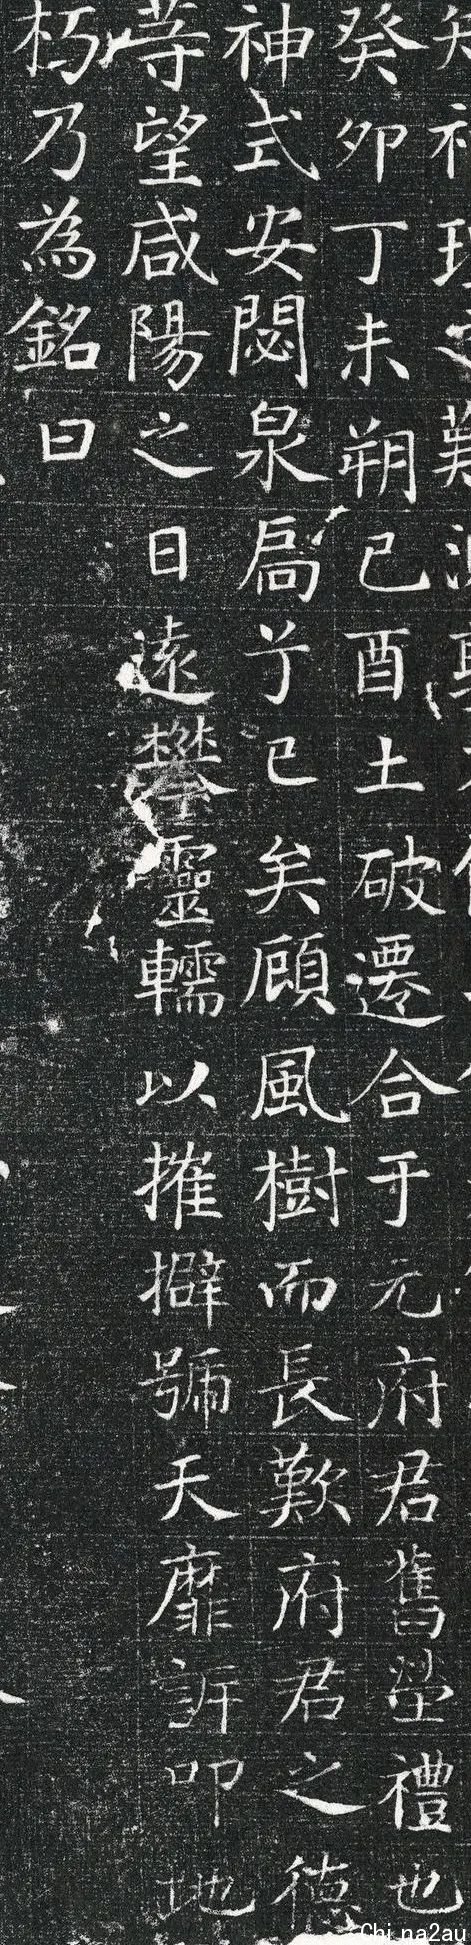 癸卯丁未朔己酉土破遷合于元府君舊塋禮也
神式安閟泉扃于已矣顧風樹而長歎府君之德
等望咸陽之日遠攀靈轜以摧擗號天靡訴叩地
朽乃為銘曰
Chi na2au